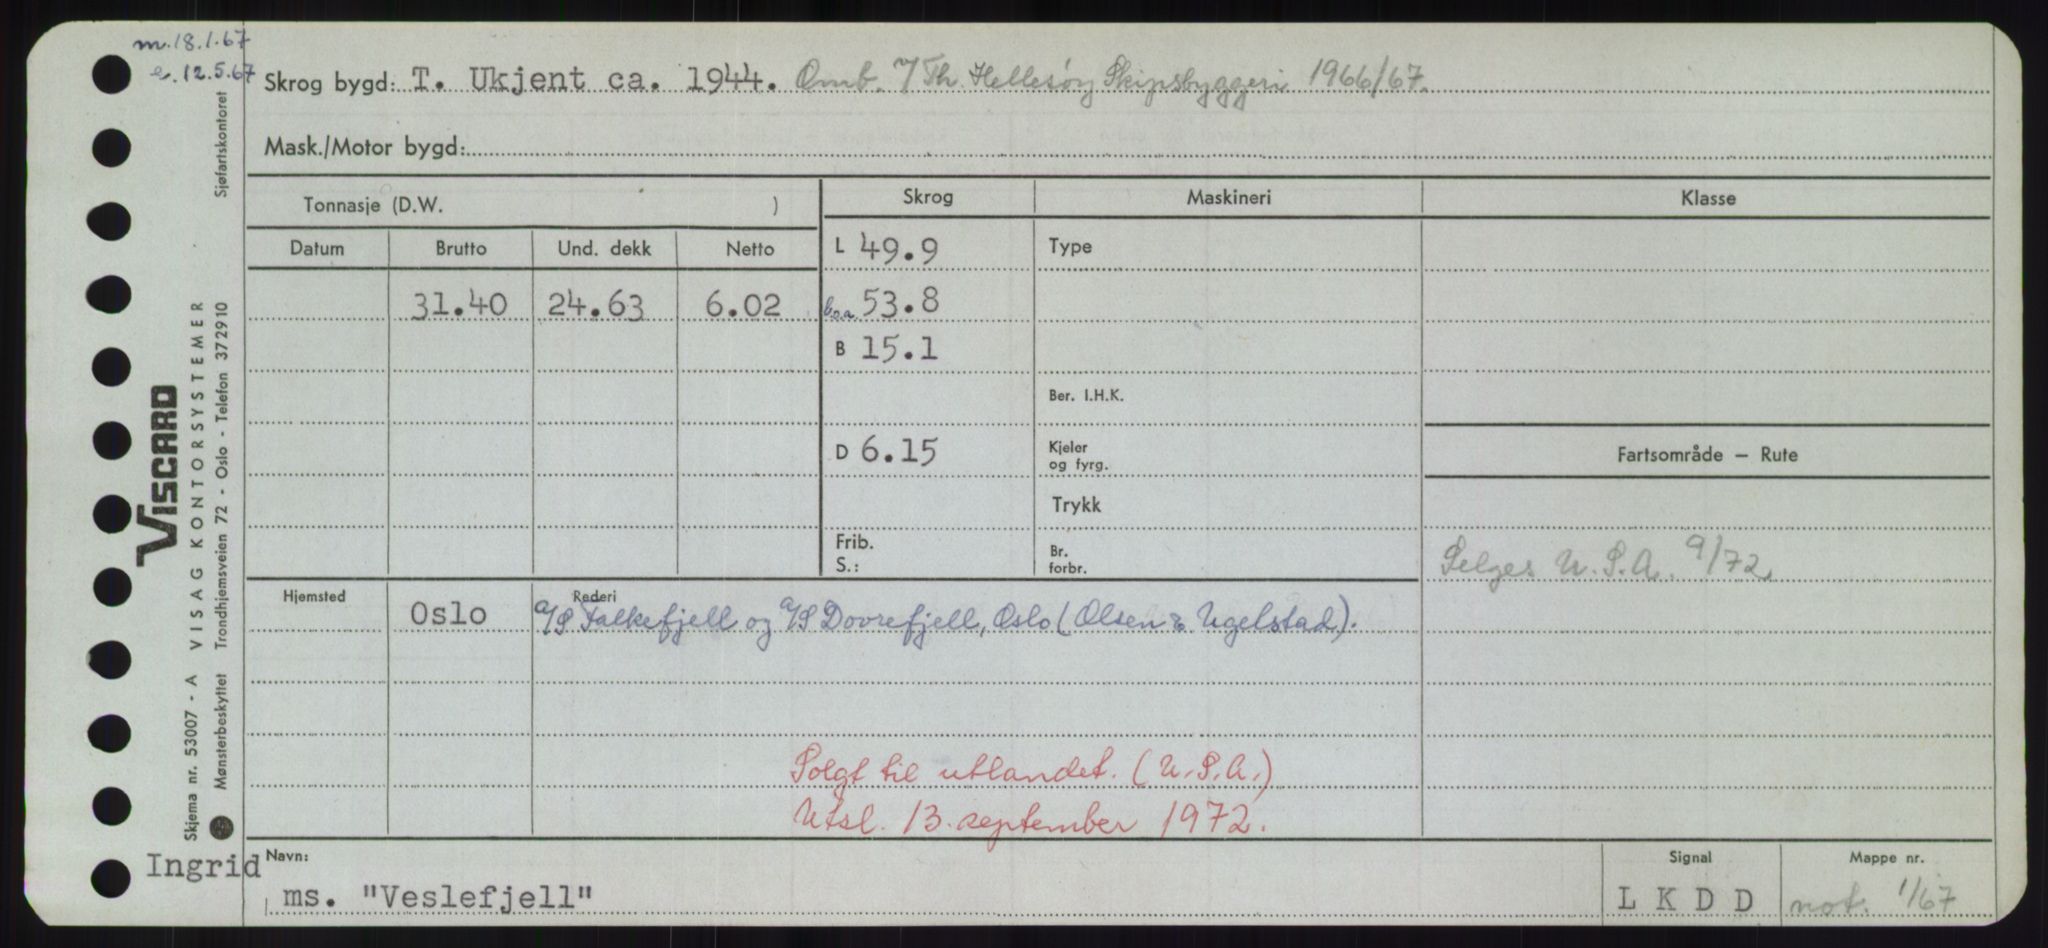 m. 18.1.67
e. 12.5.67
Skrog bygd: T. Ukjent ca. 1944. Omb. v/Th. Hellesøy Skipsbyggeri 1966/67.
Mask./Motor bygd:
Tonnasje (D.W. )
Skrog Maskineri Klasse
Datum Brutto Und. dekk Netto
L 49.9 Type
31.40 24.63 6.02 l.o.a. 53.8
B 15.1
Ber. I.H.K.
D 6.15 Kjeler og fyrg.
Fartsområde – Rute
Trykk
Frib.
S.: Br. forbr.
Selges U.S.A. 9/72
Hjemsted Rederi
Oslo A/S Falkefjell og A/S Dovrefjell, Oslo (Olsen & Ugelstad).
Solgt til utlandet. (U.S.A.)
Utsl. 13. september 1972.
Ingrid Navn: Signal Mappe nr.
ms. "Veslefjell" L K D D not. 1/67
VISCARD
Skjema nr. 53007 - A VISAG KONTORSYSTEMER
Mønsterbeskyttet Trondhjemsveien 72 - Oslo - Telefon 372910 Sjøfartskontoret